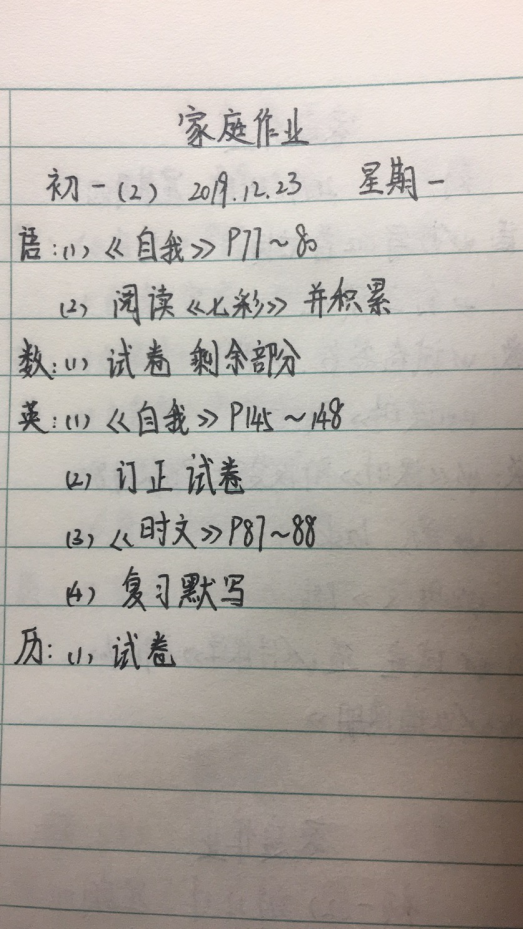 家庭作业
初一(2) 2019.12.23 星期一
语:(1)《自我》P77~80
(2) 阅读《七彩》并积累
数:(1) 试卷 剩余部分
英:(1)《自我》P145~148
(2) 订正试卷
(3)《时文》P87~88
(4) 复习默写
历:(1) 试卷